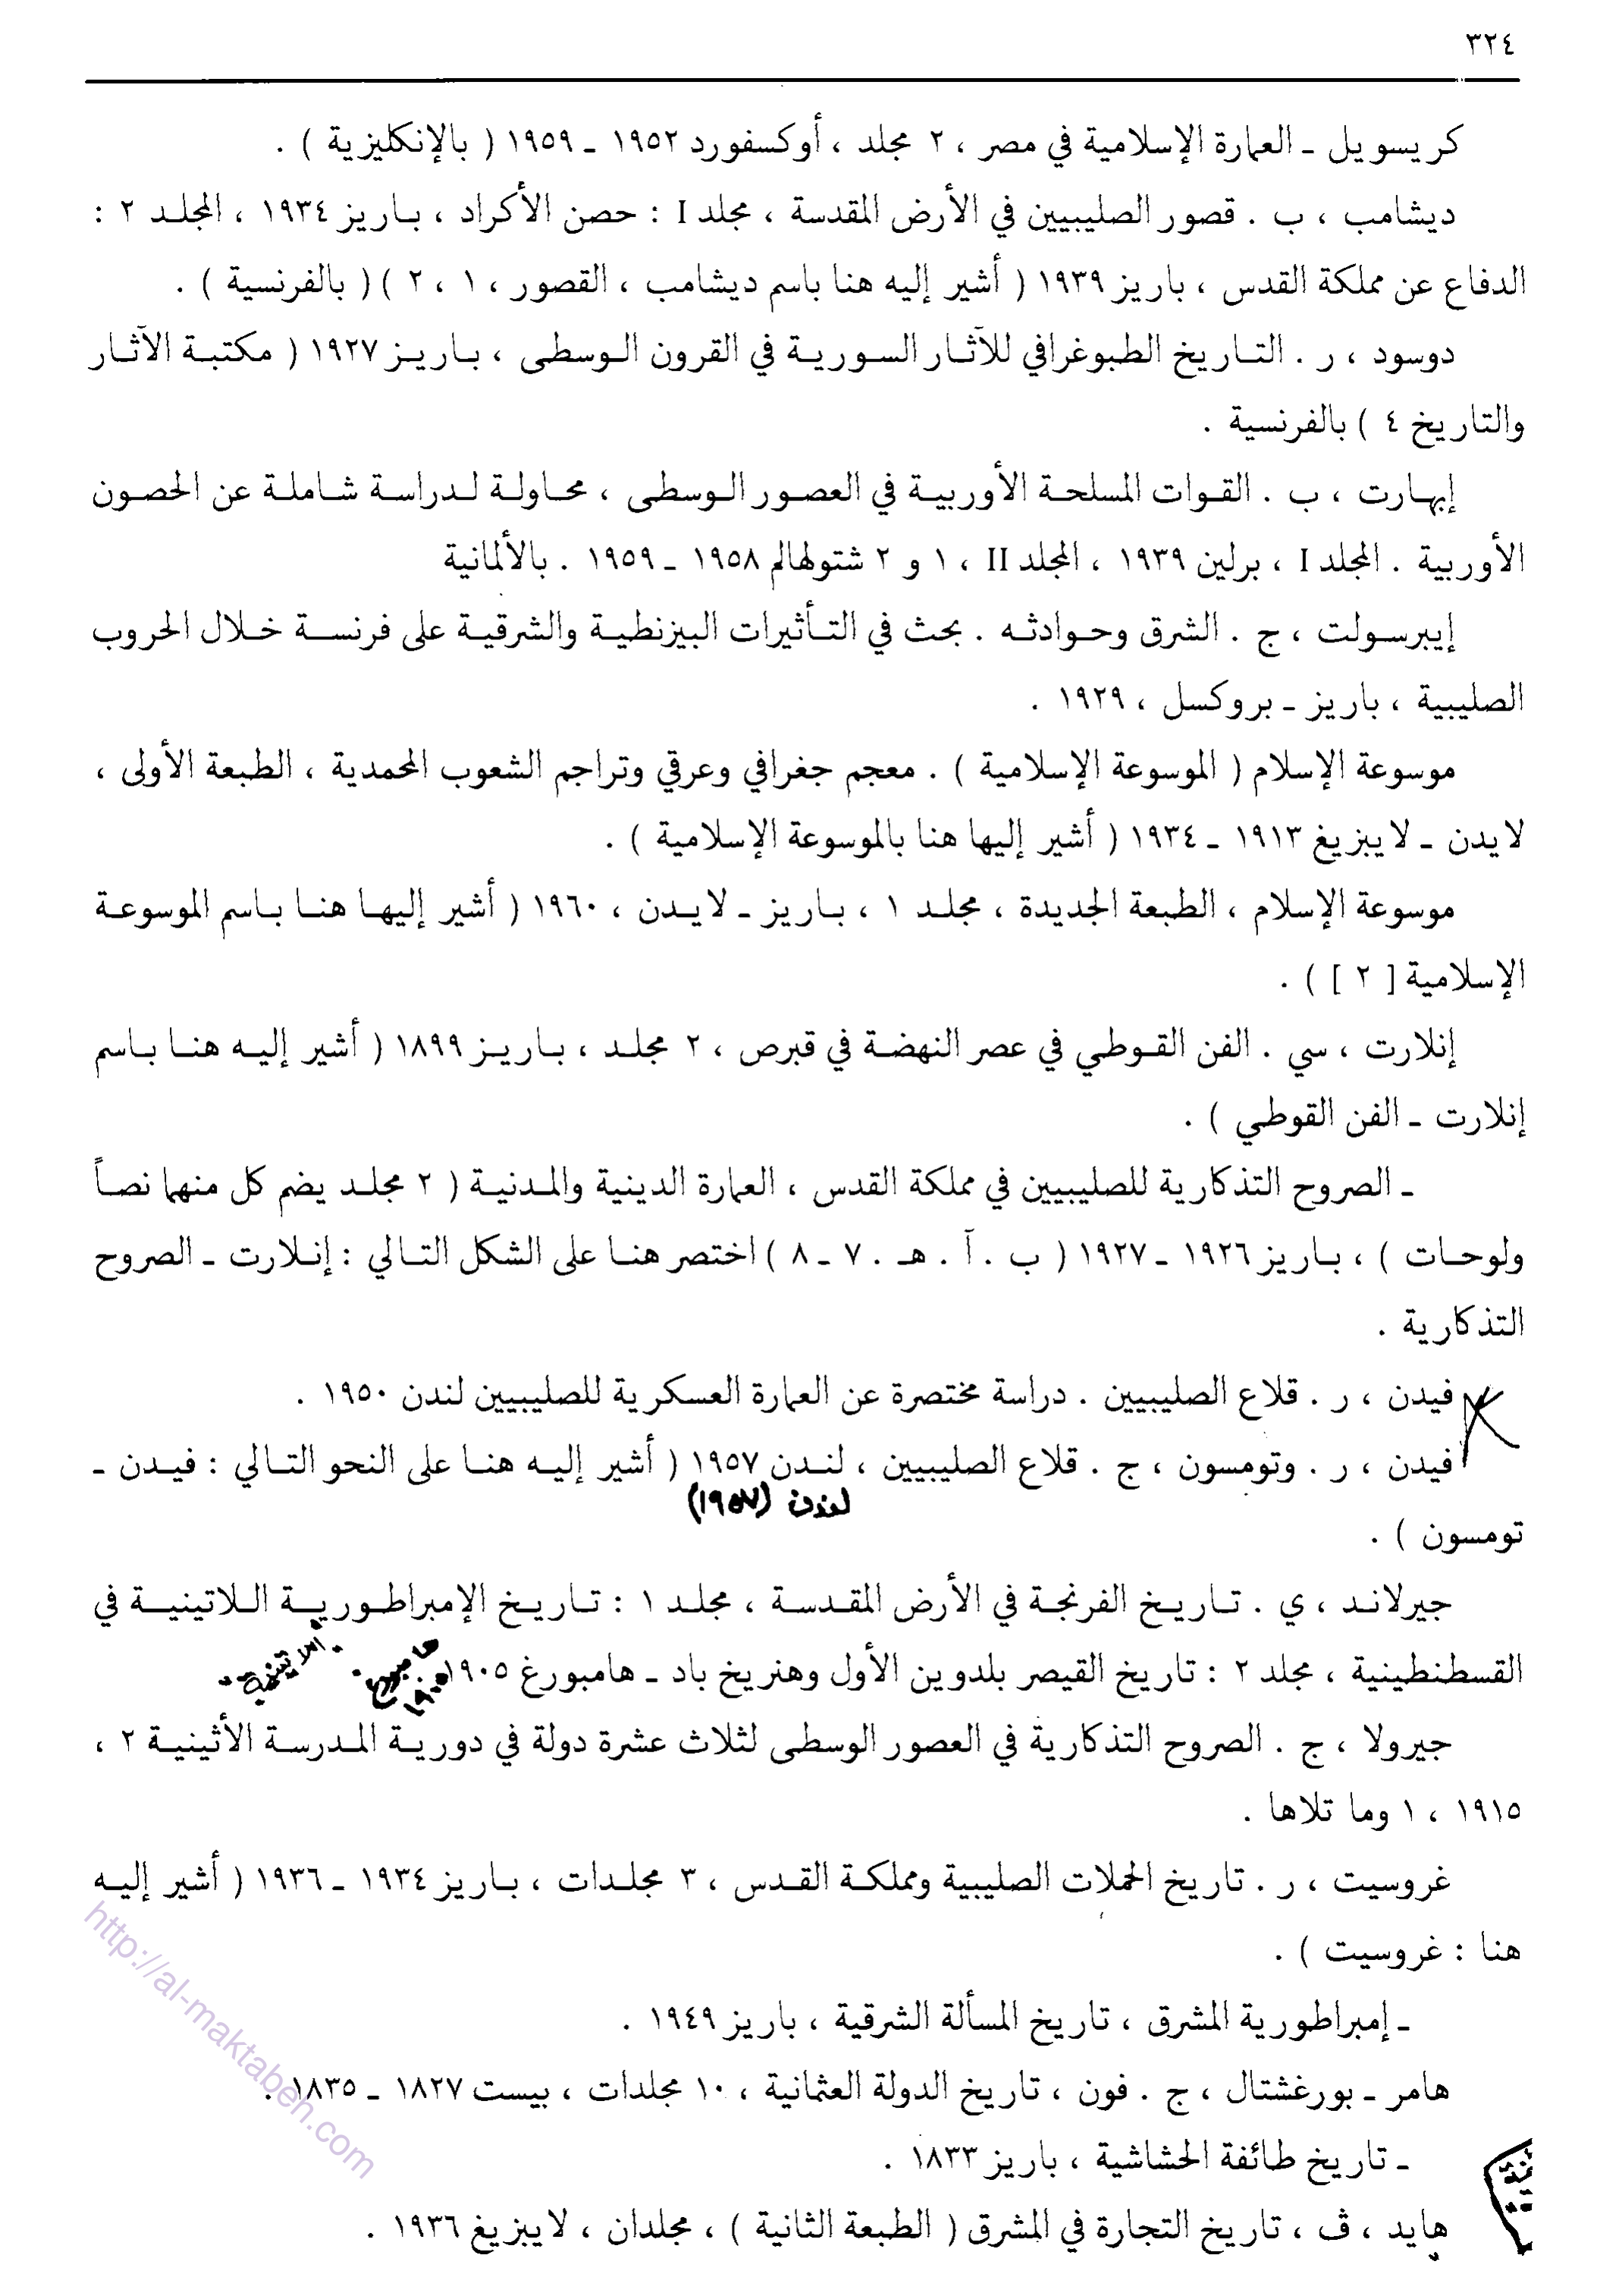 ٣٢٤
كريسويل ـ العمارة الإسلامية في مصر ، ٢ مجلد ، أوكسفورد ١٩٥٢ ـ ١٩٥٩ ( بالإنكليزية ) .
ديشامب ، ب . قصور الصليبيين في الأرض المقدسة ، مجلد I : حصن الأكراد ، باريز ١٩٣٤ ، المجلد ٢ :
الدفاع عن مملكة القدس ، باريز ١٩٣٩ ( أشير إليه هنا باسم ديشامب ، القصور ، ١ ، ٢ ) ( بالفرنسية ) .
دوسود ، ر . التاريخ الطبوغرافي للآثار السورية في القرون الوسطى ، باريز ١٩٢٧ ( مكتبة الآثار
والتاريخ ٤ ) بالفرنسية .
إبهارت ، ب . القوات المسلحة الأوربية في العصور الوسطى ، محاولة لدراسة شاملة عن الحصون
الأوربية . المجلد I ، برلين ١٩٣٩ ، المجلد II ، ١ و ٢ شتولهالم ١٩٥٨ ـ ١٩٥٩ . بالألمانية
إيبرسولت ، ج . الشرق وحوادثه . بحث في التأثيرات البيزنطية والشرقية على فرنسة خلال الحروب
الصليبية ، باريز ـ بروكسل ، ١٩٢٩ .
موسوعة الإسلام ( الموسوعة الإسلامية ) . معجم جغرافي وعرقي وتراجم الشعوب المحمدية ، الطبعة الأولى ،
لايدن ـ لايبزيغ ١٩١٣ ـ ١٩٣٤ ( أشير إليها هنا بالموسوعة الإسلامية ) .
موسوعة الإسلام ، الطبعة الجديدة ، مجلد ١ ، باريز ـ لايدن ، ١٩٦٠ ( أشير إليها هنا باسم الموسوعة
الإسلامية [ ٢ ] ) .
إنلارت ، سي . الفن القوطي في عصر النهضة في قبرص ، ٢ مجلد ، باريز ١٨٩٩ ( أشير إليه هنا باسم
إنلارت ـ الفن القوطي ) .
ـ الصروح التذكارية للصليبيين في مملكة القدس ، العمارة الدينية والمدنية ( ٢ مجلد يضم كل منهما نصاً
ولوحات ) ، باريز ١٩٢٦ ـ ١٩٢٧ ( ب . آ . هـ . ٧ ـ ٨ ) اختصر هنا على الشكل التالي : إنلارت ـ الصروح
التذكارية .
فيدن ، ر . قلاع الصليبيين . دراسة مختصرة عن العمارة العسكرية للصليبيين لندن ١٩٥٠ .
فيدن ، ر . وتومسون ، ج . قلاع الصليبيين ، لندن ١٩٥٧ ( أشير إليه هنا على النحو التالي : فيدن ـ
لندن (١٩٥٧)
تومسون ) .
جيرلاند ، ي . تاريخ الفرنجة في الأرض المقدسة ، مجلد ١ : تاريخ الإمبراطورية اللاتينية في
اللاتينية . هامبورغ ١٩٠٥
القسطنطينية ، مجلد ٢ : تاريخ القيصر بلدوين الأول وهنريخ باد ـ هامبورغ ١٩٠٥
جيرولا ، ج . الصروح التذكارية في العصور الوسطى لثلاث عشرة دولة في دورية المدرسة الأثينية ٢ ،
١٩١٥ ، ١ وما تلاها .
غروسيت ، ر . تاريخ الحملات الصليبية ومملكة القدس ، ٣ مجلدات ، باريز ١٩٣٤ ـ ١٩٣٦ ( أشير إليه
هنا : غروسيت ) .
ـ إمبراطورية المشرق ، تاريخ المسألة الشرقية ، باريز ١٩٤٩ .
هامر ـ بورغشتال ، ج . فون ، تاريخ الدولة العثمانية ، ١٠ مجلدات ، بيست ١٨٢٧ ـ ١٨٣٥ .
ـ تاريخ طائفة الحشاشية ، باريز ١٨٣٣ .
هايد ، ڤ ، تاريخ التجارة في المشرق ( الطبعة الثانية ) ، مجلدان ، لايبزيغ ١٩٣٦ .
http://al-maktabeh.com